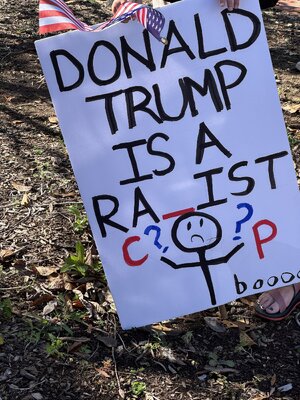 DONALD
TRUMP
IS A
RA_IST
C ? ? P
booo